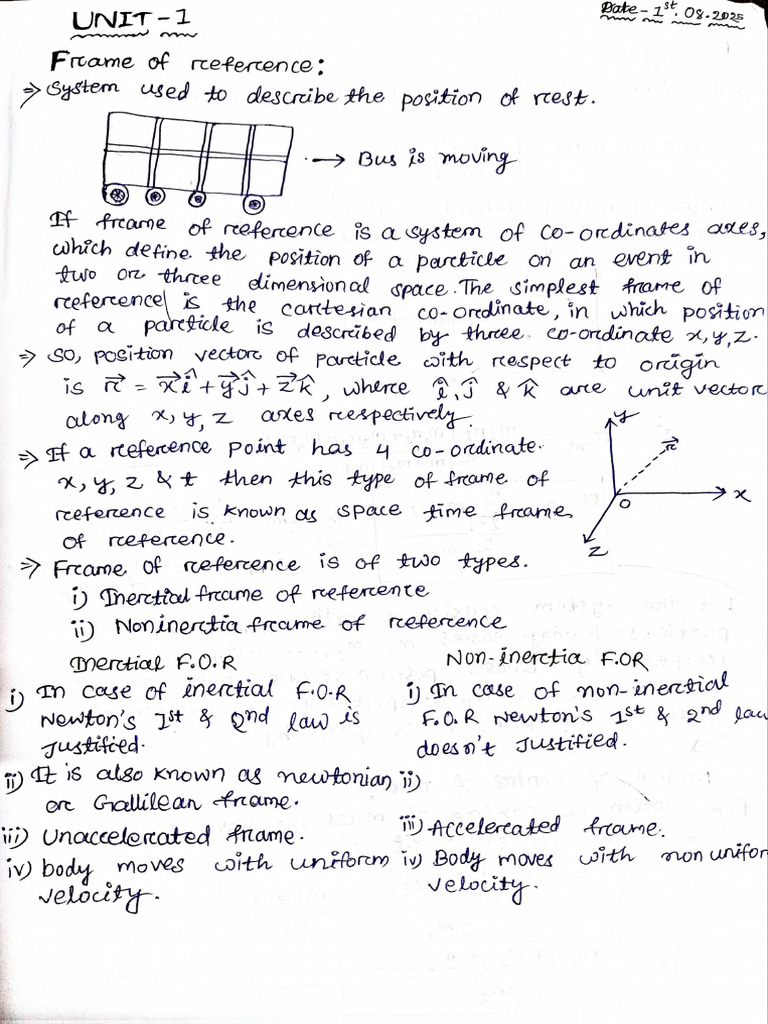 UNIT-1
Date-1st.08.2025
Frame of reference:
⇒ System used to describe the position of rest.
→ Bus is moving
If frame of reference is a system of co-ordinates axes,
which define the position of a particle on an event in
two or three dimensional space. The simplest frame of
reference is the cartesian co-ordinate, in which position
of a particle is described by three co-ordinate x, y, z.
⇒ So, position vector of particle with respect to origin
is r⃗ = x⃗î + y⃗ĵ + z⃗k̂, where î, ĵ & k̂ are unit vector
along x, y, z axes respectively.
⇒ If a reference point has 4 co-ordinate.
x, y, z & t then this type of frame of
reference is known as space time frame
of reference.
y
r⃗
x
O
z
⇒ Frame of reference is of two types.
i) Inertial frame of reference
ii) Noninertia frame of reference
Inertial F.O.R
i) In case of inertial F.O.R
Newton's 1st & 2nd law is
Justified.
ii) It is also known as newtonian
or Gallilean frame.
iii) Unaccelerated frame.
iv) body moves with uniform
velocity.
Non-inertia F.OR
i) In case of non-inertial
F.O.R Newton's 1st & 2nd law
doesn't Justified.
ii)
iii) Accelerated frame.
iv) Body moves with non unifor
velocity.